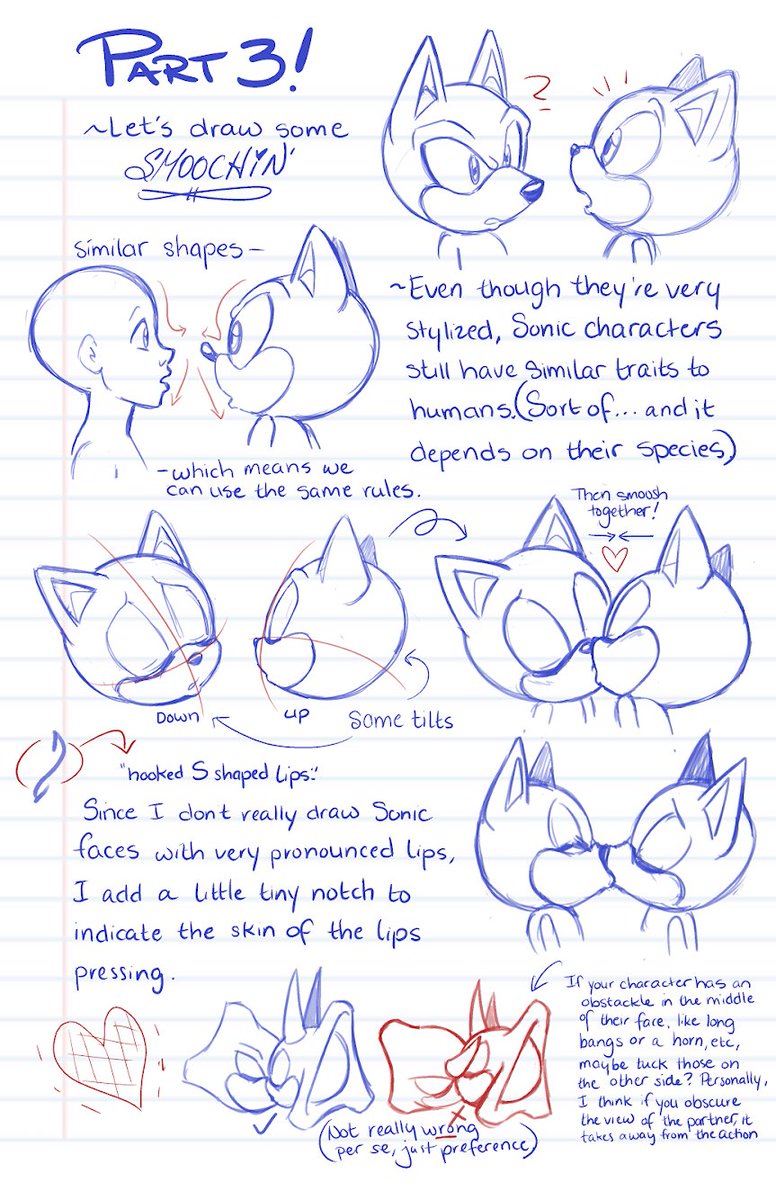 PART 3!
~Let's draw some
SMOOCHIN'
?
similar shapes—
~Even though they're very
stylized, Sonic characters
still have similar traits to
humans. (Sort of... and it
depends on their species)
-which means we
can use the same rules.
Then smoosh
together!
Down
up
Some tilts
"hooked S shaped Lips:"
Since I dont really draw Sonic
faces with very pronounced lips,
I add a little tiny notch to
indicate the skin of the lips
pressing.
If your character has an
obstackle in the middle
of their face, like long
bangs or a horn, etc,
maybe tuck those on
the other side? Personally,
I think if you obscure
the view of the partner, it
takes away from the action
(Not really wrong
per se, just preference)